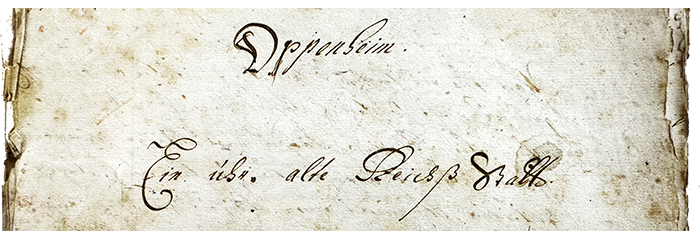 Oppenheim.
Ein uhr. alte Reichß Statt.